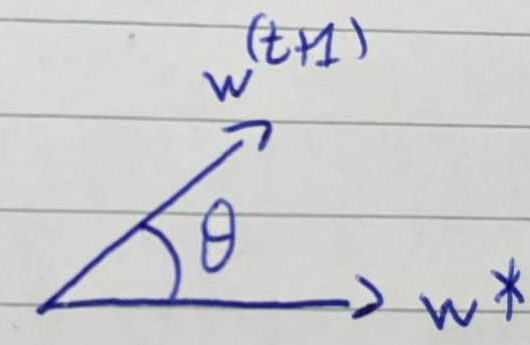 w^(t+1)
θ
w*